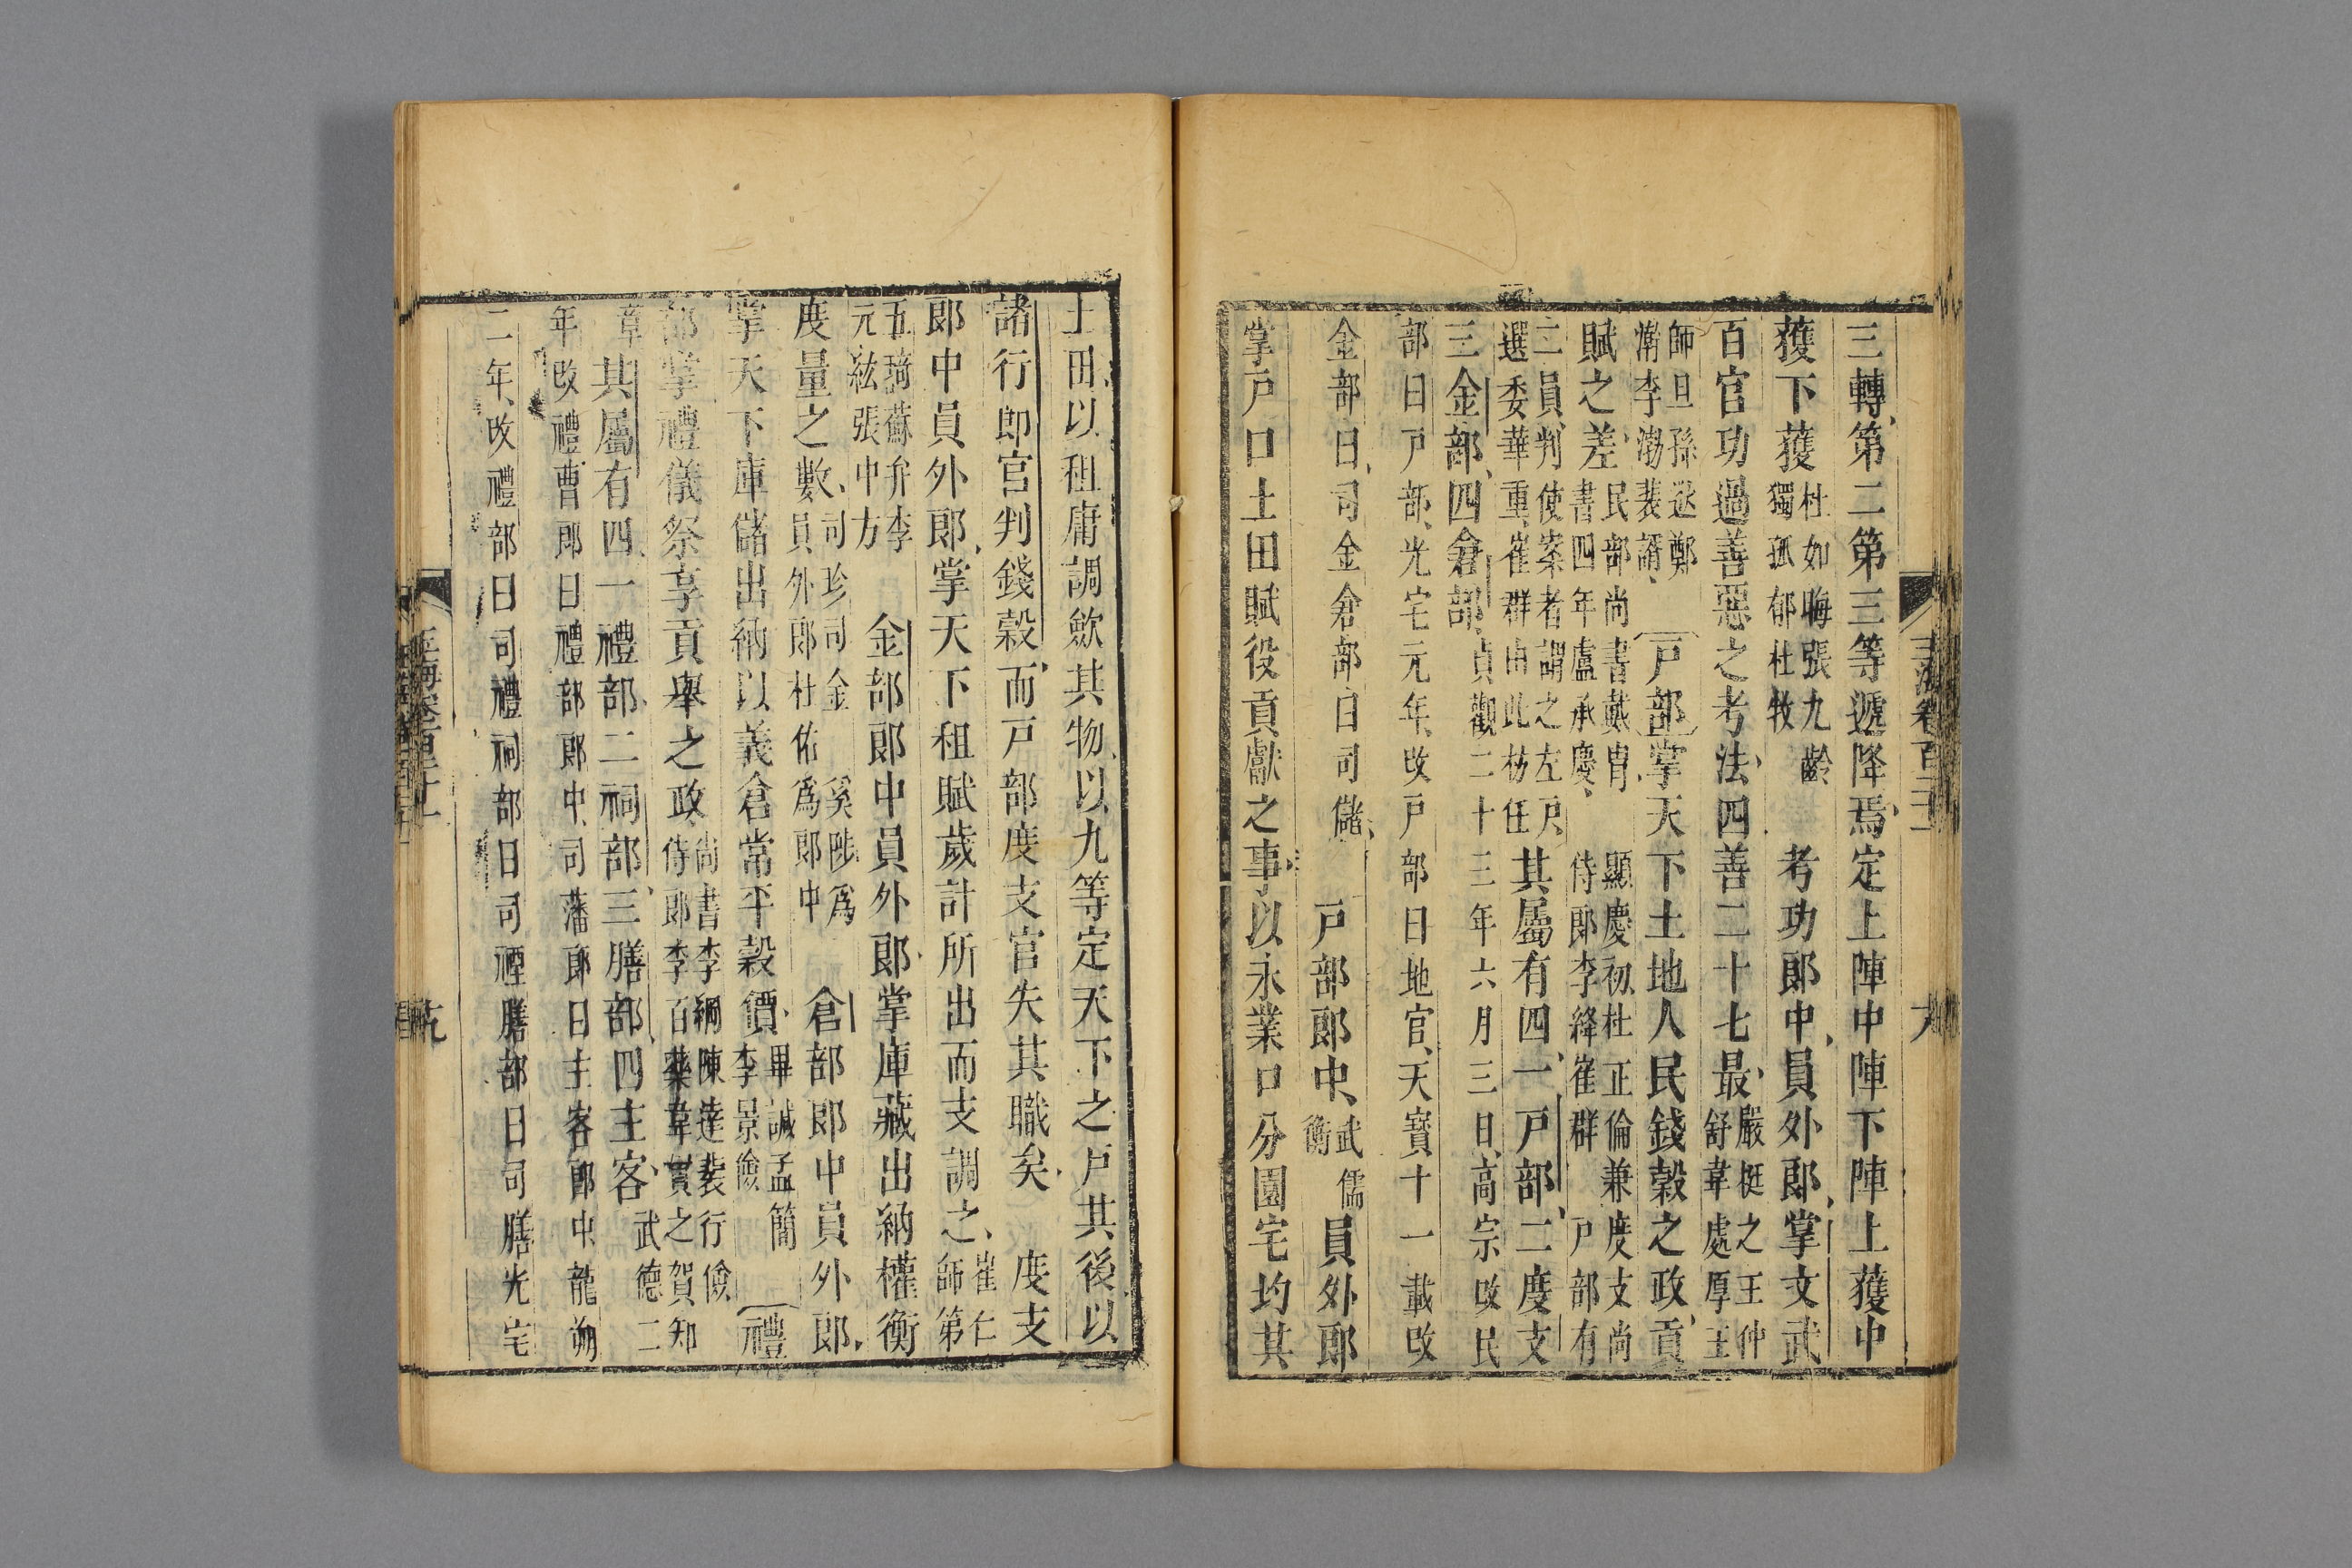 三轉第二第三等遞降焉定上陣中陣下陣上獲中
獲下獲杜如晦張九齡獨孤郁杜牧 考功郎中員外郎掌文武
百官功過善惡之考法四善二十七最嚴挺之王仲舒韋處厚王
師旦孫逖鄭澣李渤裴諝 戸部掌天下土地人民錢穀之政貢
賦之差民部尚書戴冑書四年盧承慶 顯慶初杜正倫兼度支尚侍郎李絳崔群 戸部有
二員判使案者謂之左戸選委華重崔群由此枋任其屬有四一戸部二度支
三金部四倉部貞觀二十三年六月三日高宗改民
部曰戸部光宅元年改戸部曰地官天寶十一載改
金部曰司金倉部曰司儲 戸部郎中武儒衡員外郎
掌戸口土田賦役貢獻之事以永業口分園宅均其
土田以租庸調斂其物以九等定天下之戸其後以
諸行郎官判錢穀而戸部度支官失其職矣 度支
郎中員外郎掌天下租賦歲計所出而支調之崔仁師第
五琦蘇弁李元紘張中方 金部郎中員外郎掌庫藏出納權衡
度量之數司珍司金員外郎杜佑 奚陟爲爲郎中 倉部郎中員外郎
掌天下庫儲出納以義倉常平穀價畢諴孟簡李景儉 禮
部掌禮儀祭享貢舉之政尚書李綱陳達裴行儉侍郎李百藥韋貫之賀知
章其屬有四一禮部二祠部三膳部四主客武德二
年改禮曹郎曰禮部郎中司藩郎曰主客郎中龍朔
二年改禮部曰司禮祠部曰司禋膳部曰司膳光宅